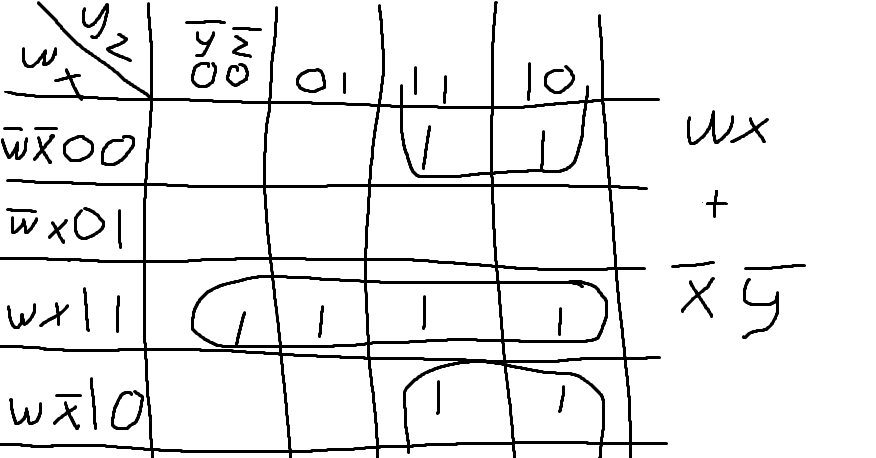 yz
wx
y̅ z̅
00 01 11 10
w̅ x̅ 00 1 1
w̅ x 01
wx 11 1 1 1 1
w x̅ 10 1 1
wx
+
x̅ y̅